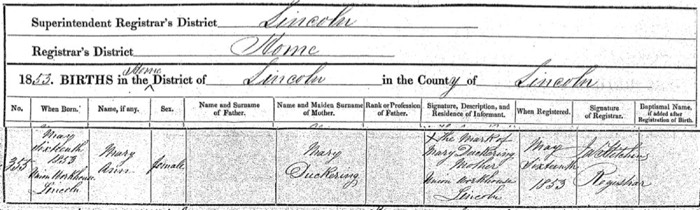 Superintendent Registrar's District Lincoln
Registrar's District Home
1853. BIRTHS in the Home District of Lincoln in the County of Lincoln
No. When Born. Name, if any. Sex. Name and Surname of Father. Name and Maiden Surname of Mother. Rank or Profession of Father. Signature, Description, and Residence of Informant. When Registered. Signature of Registrar. Baptismal Name, if added after Registration of Birth.
355
May
Sixteenth
1853
Union Workhouse
Lincoln
Mary
Ann
female
Mary
Duckering
X The Mark of
Mary Duckering
Mother
Union Workhouse
Lincoln
May
Sixteenth
1853
Registrar